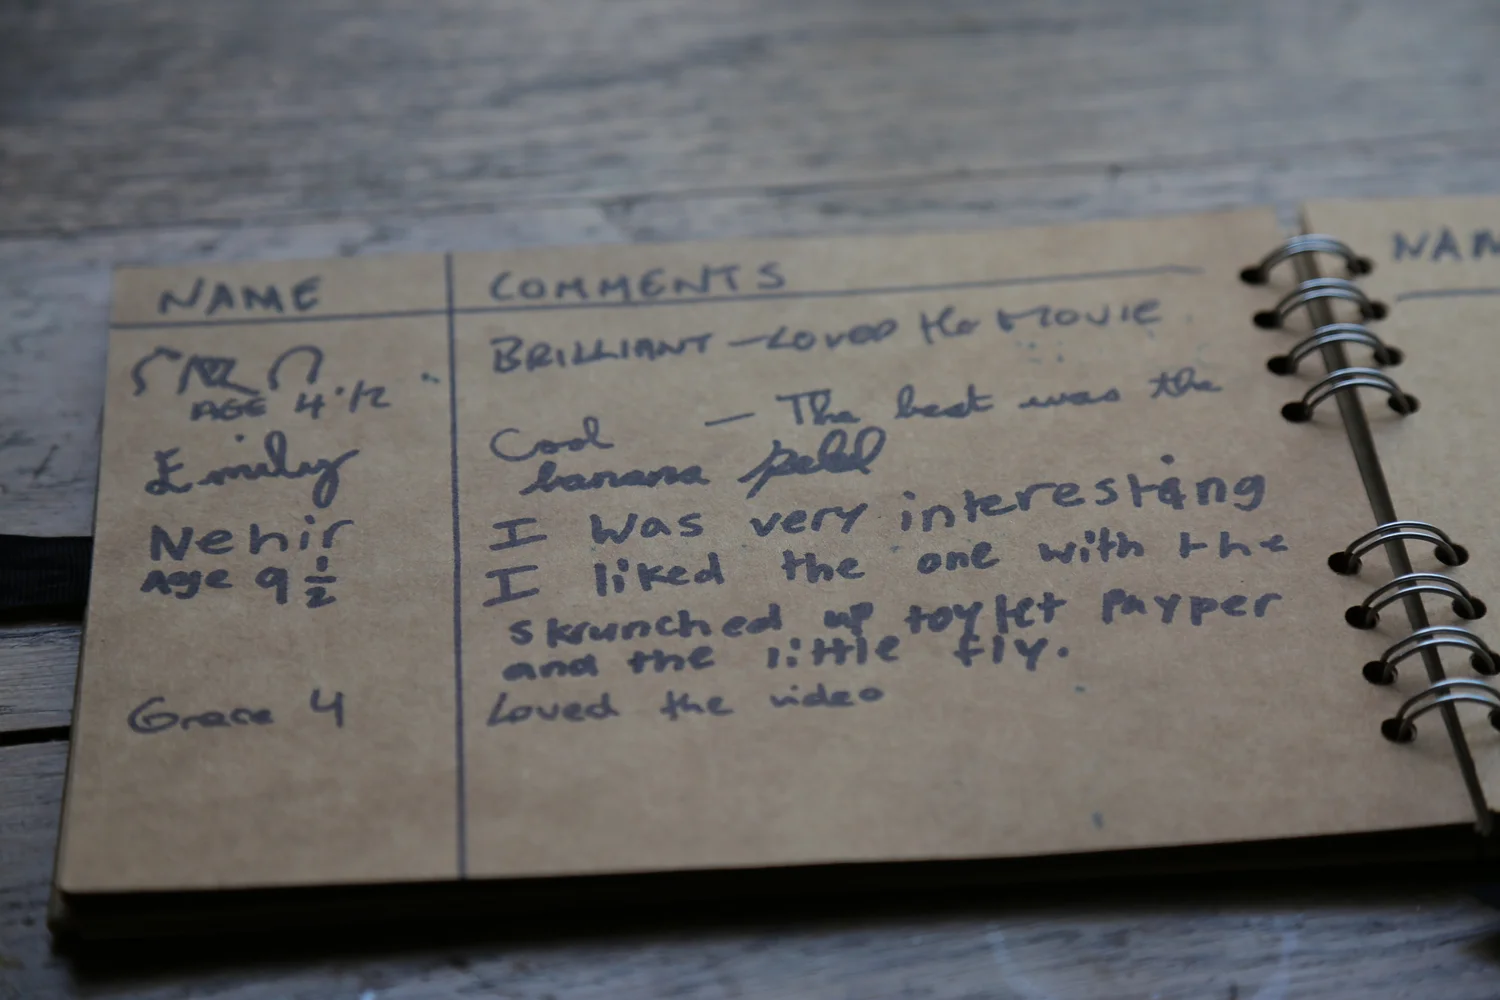 NAME COMMENTS
BRILLIANT - LOVED the MOVIE
AGE 4 1/2
Emily Cool - The best was the
banana peel
Nehir I was very interesting
Age 9 1/2 I liked the one with the
skrunched up toylet payper
and the little fly.
Grace 4 Loved the video
NAM